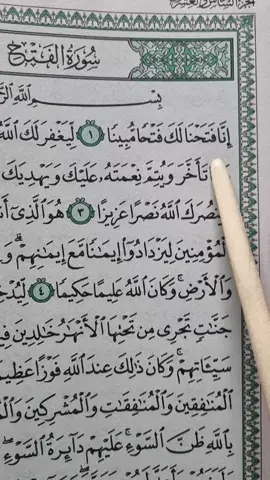 الجزء السادس والعشرون
سُورَةُ الفَتْحِ
بِسْمِ اللَّهِ
إِنَّا فَتَحْنَا لَكَ فَتْحًا مُّبِينًا ١ لِّيَغْفِرَ لَكَ اللَّهُ
تَأَخَّرَ وَيُتِمَّ نِعْمَتَهُ عَلَيْكَ وَيَهْدِيَكَ
اللَّهُ نَصْرًا عَزِيزًا ٣ هُوَ الَّذِي
الْمُؤْمِنِينَ لِيَزْدَادُوا إِيمَانًا مَّعَ إِيمَانِهِمْ
وَالْأَرْضِ وَكَانَ اللَّهُ عَلِيمًا حَكِيمًا ٤
جَنَّاتٍ تَجْرِي مِن تَحْتِهَا الْأَنْهَارُ خَالِدِينَ
سَيِّئَاتِهِمْ وَكَانَ ذَلِكَ عِندَ اللَّهِ فَوْزًا عَظِيمًا
الْمُنَافِقِينَ وَالْمُنَافِقَاتِ وَالْمُشْرِكِينَ
بِاللَّهِ ظَنَّ السَّوْءِ عَلَيْهِمْ دَائِرَةُ السَّوْءِ